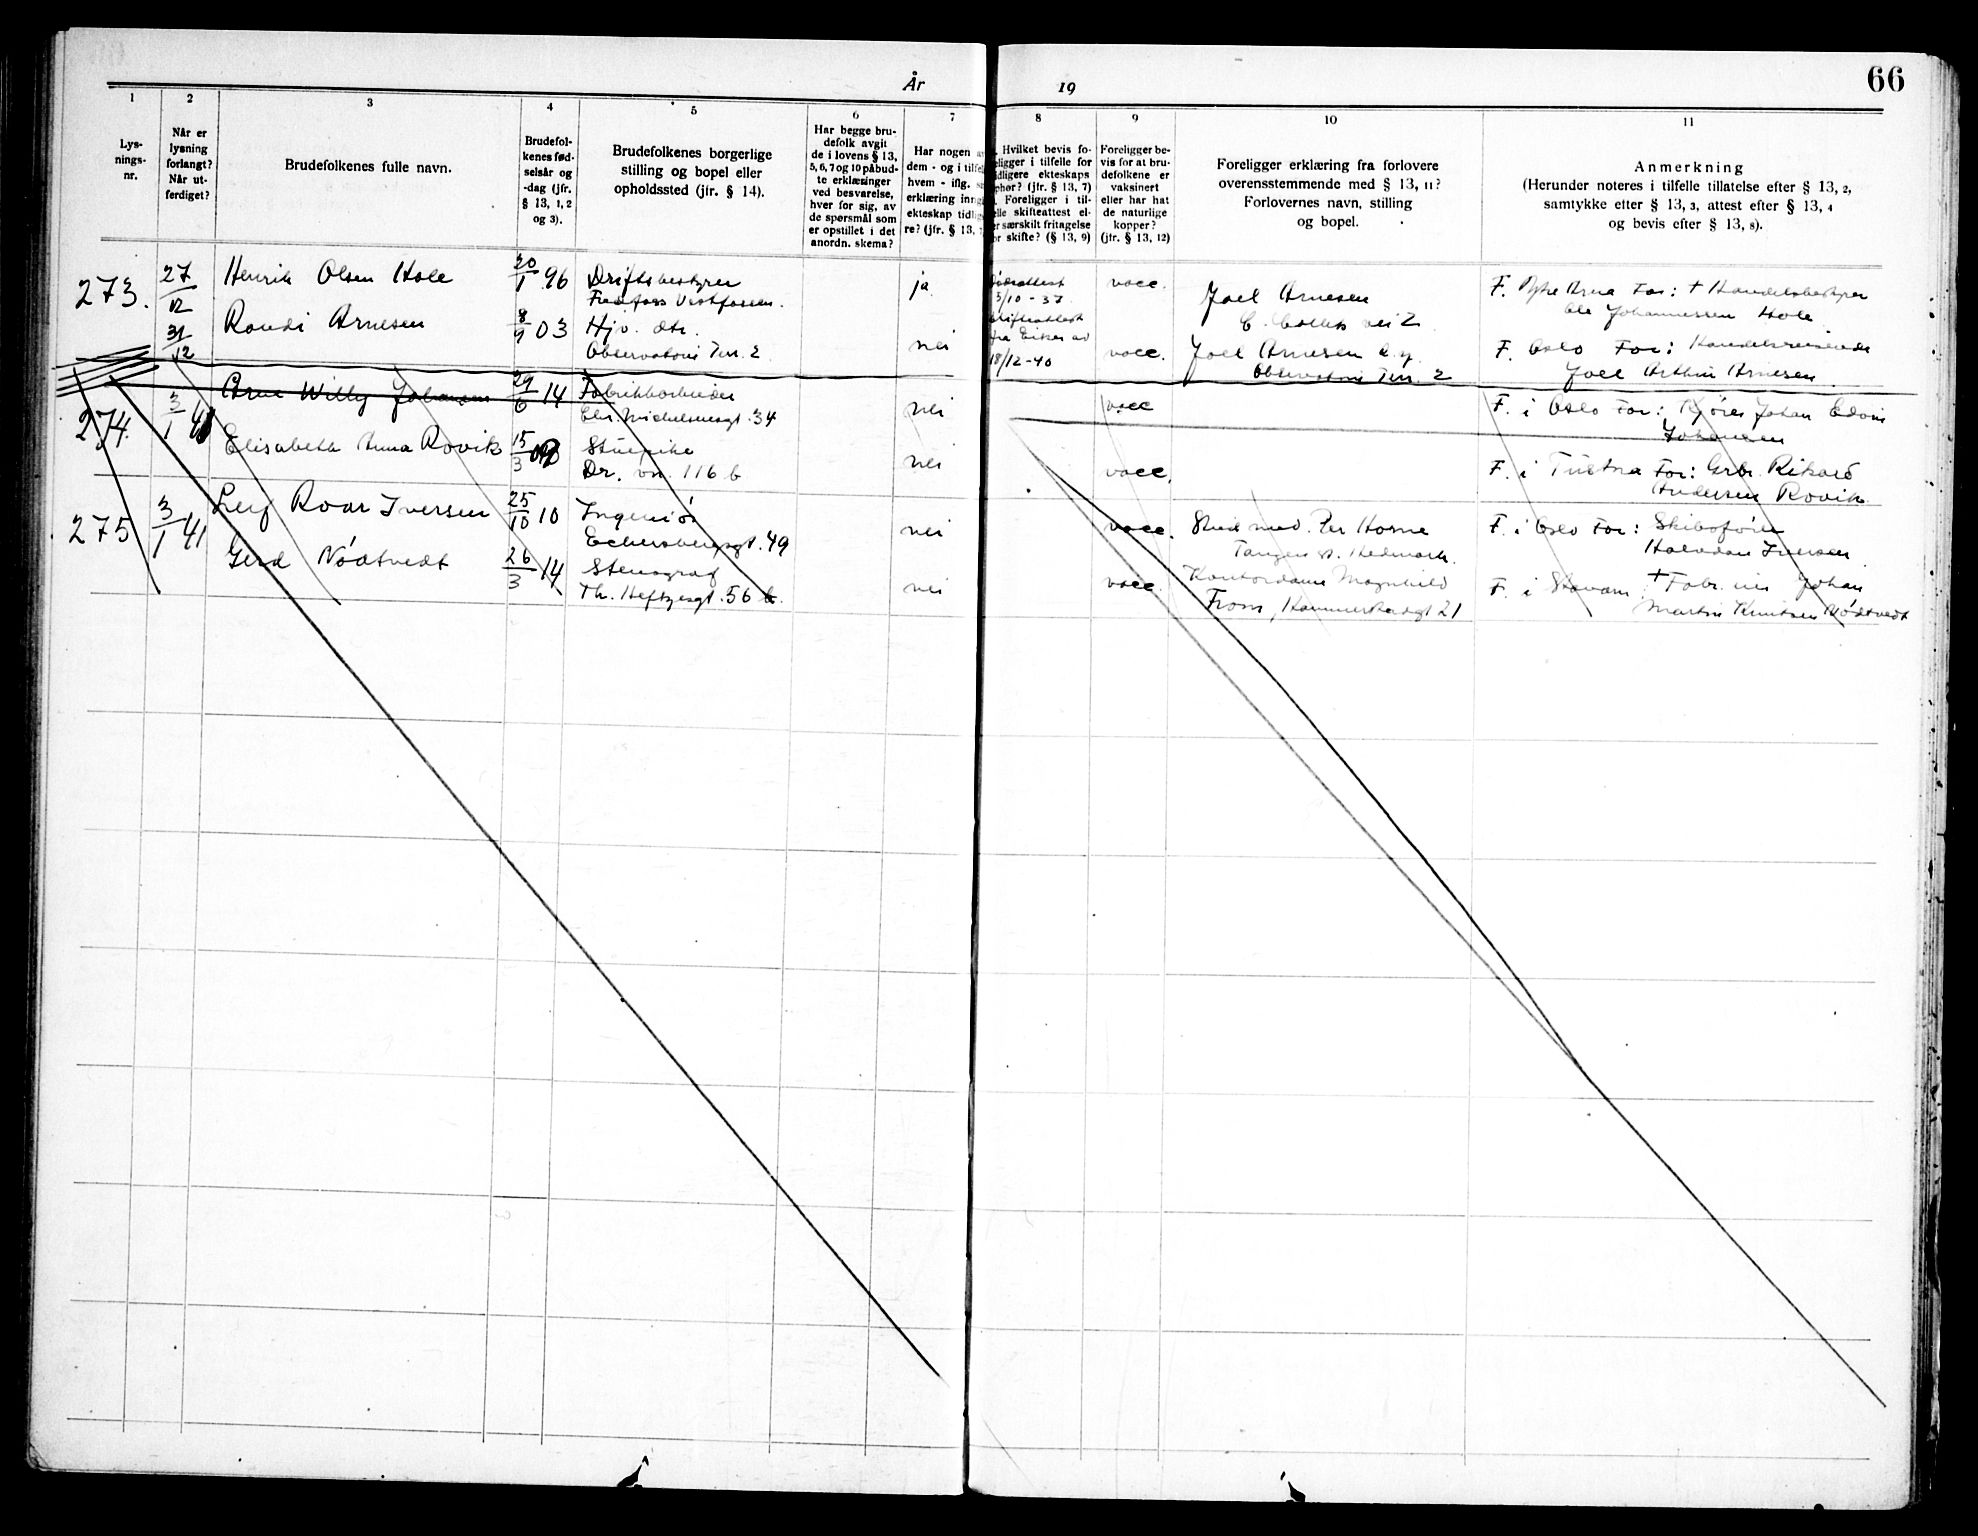 66
År 19
1
2
3
4
5
6
7
8
9
10
11
Lys-
nings-
nr.
Når er
lysning
forlangt?
Når ut-
ferdiget?
Brudefolkenes fulle navn.
Brudefol-
kenes fød-
selsår og
-dag (jfr.
§ 13, 1, 2
og 3).
Brudefolkenes borgerlige
stilling og bopel eller
opholdssted (jfr. § 14).
Har begge bru-
defolk avgit
de i lovens § 13,
5, 6, 7 og 10 påbud-
te erklæringer
ved besvarelse,
hver for sig, av
de spørsmål som
er opstillet i det
anordn. skema?
Har nogen a
dem - og i tilfel
hvem - iflg. s
erklæring inng
ekteskap tidlig
re? (jfr. § 13,
Hvilket bevis fo-
religger i tilfelle for
idligere ekteskaps
phør? (jfr. § 13, 7)
Foreligger i til-
elle skifteattest el-
er særskilt fritagelse
or skifte? (§ 13, 9)
Foreligger be-
vis for at bru-
defolkene er
vaksinert
eller har hat
de naturlige
kopper?
(jfr. § 13, 12)
Foreligger erklæring fra forlovere
overensstemmende med § 13, 11?
Forlovernes navn, stilling
og bopel.
Anmerkning
(Herunder noteres i tilfelle tillatelse efter § 13, 2,
samtykke efter § 13, 3, attest efter § 13, 4
og bevis efter § 13, 8).
273.
27/12
31/12
Henrik Olsen Hole
20/1 96
Driftsbestyrer
Vestfossen.
ja
5/10-37
vacc.
Joel Arnesen
C. Colletts vei 2
F. For: + Handelsbestyrer
Ole Johannessen Hole
Randi Arnesen
8/9 03
Hjv. dtr.
Observatorie Terr. 2
nei
fra Eiker av
18/12-40
vacc.
Joel Arnesen d.y.
Observatorie Terr. 2
F. Oslo For: Handelsreisende
Joel Arthur Arnesen
274.
3/1 41
Arne Willy Johansen
29/6 14
Fabrikkarbeider
Chr. Michelsensgt. 34
nei
vacc
F. i Oslo For: Kjører Johan Edvin
Johansen
Elisabeth Anna Rovik
15/3
Stuepike
Dr. vn. 116 b
nei
vacc.
F. i Tustna For: Grbr. Rikard
Andersen Rovik
275
3/1 41
Leif Roar Iversen
25/10 10
Ingeniør
Eckersbergsgt. 49
nei
vacc.
Stud med. Per Horne
Tangen st. Hedmark.
F. i Oslo For: Skibsfører
Halvdan Iversen
Gerd Nödtvedt
26/3 14
Stenograf
Th. Heftyesgt. 56 b.
nei
vacc.
Kontordame Magnhild
From, Kammerherregt 21
F. i Stavern + Fabr. eier Johan
Martin Knutsen Nödtvedt